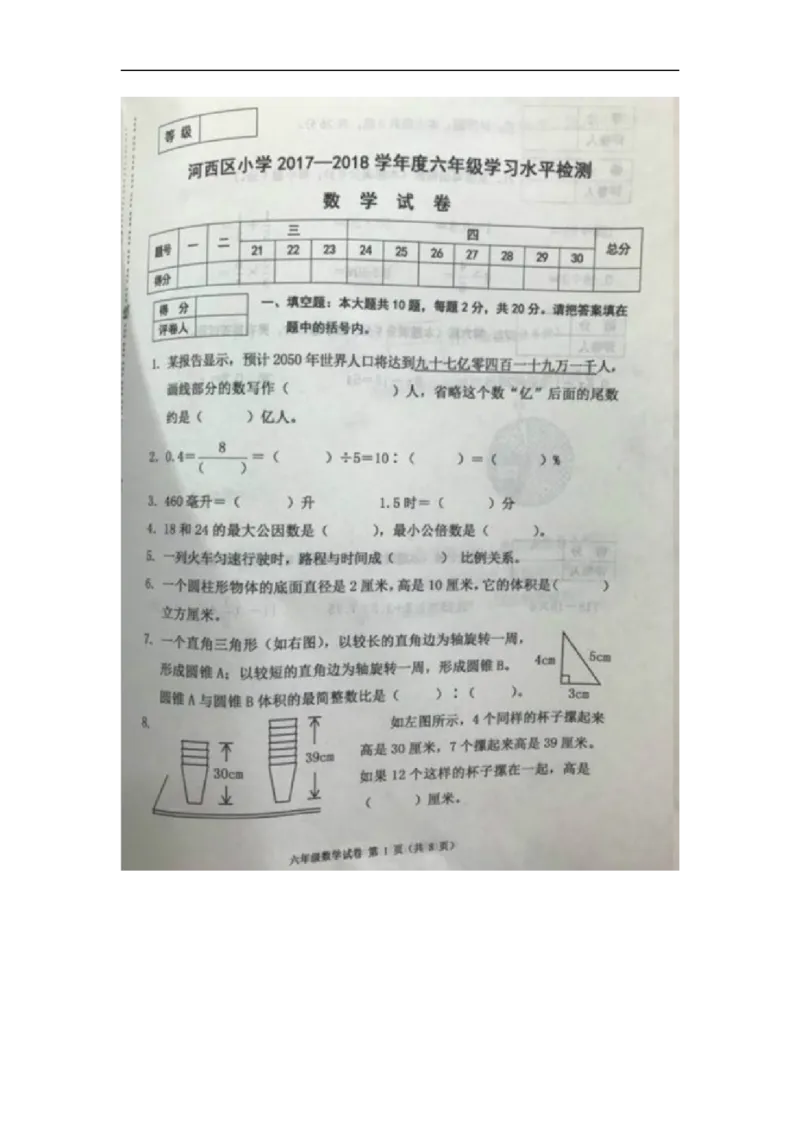 等级
河西区小学2017—2018学年度六年级学习水平检测
数 学 试 卷
题号 一 二 三 四 总分
21 22 23 24 25 26 27 28 29 30
得分
得 分
评卷人
一、填空题：本大题共10题，每题2分，共20分。请把答案填在
题中的括号内。
1. 某报告显示，预计2050年世界人口将达到九十七亿零四百一十九万一千人，
画线部分的数写作（ ）人，省略这个数“亿”后面的尾数
约是（ ）亿人。
2. 0.4=8/（ ）=（ ）÷5=10∶（ ）=（ ）%
3. 460毫升=（ ）升 1.5时=（ ）分
4. 18和24的最大公因数是（ ），最小公倍数是（ ）。
5. 一列火车匀速行驶时，路程与时间成（ ）比例关系。
6. 一个圆柱形物体的底面直径是2厘米，高是10厘米。它的体积是（ ）
立方厘米。
7. 一个直角三角形（如右图），以较长的直角边为轴旋转一周，
形成圆锥A；以较短的直角边为轴旋转一周，形成圆锥B。
圆锥A与圆锥B体积的最简整数比是（ ）∶（ ）。
4cm 5cm
3cm
8. 如左图所示，4个同样的杯子摞起来
高是30厘米，7个摞起来高是39厘米。
如果12个这样的杯子摞在一起，高是
（ ）厘米。
30cm
39cm
六年级数学试卷 第1页（共8页）